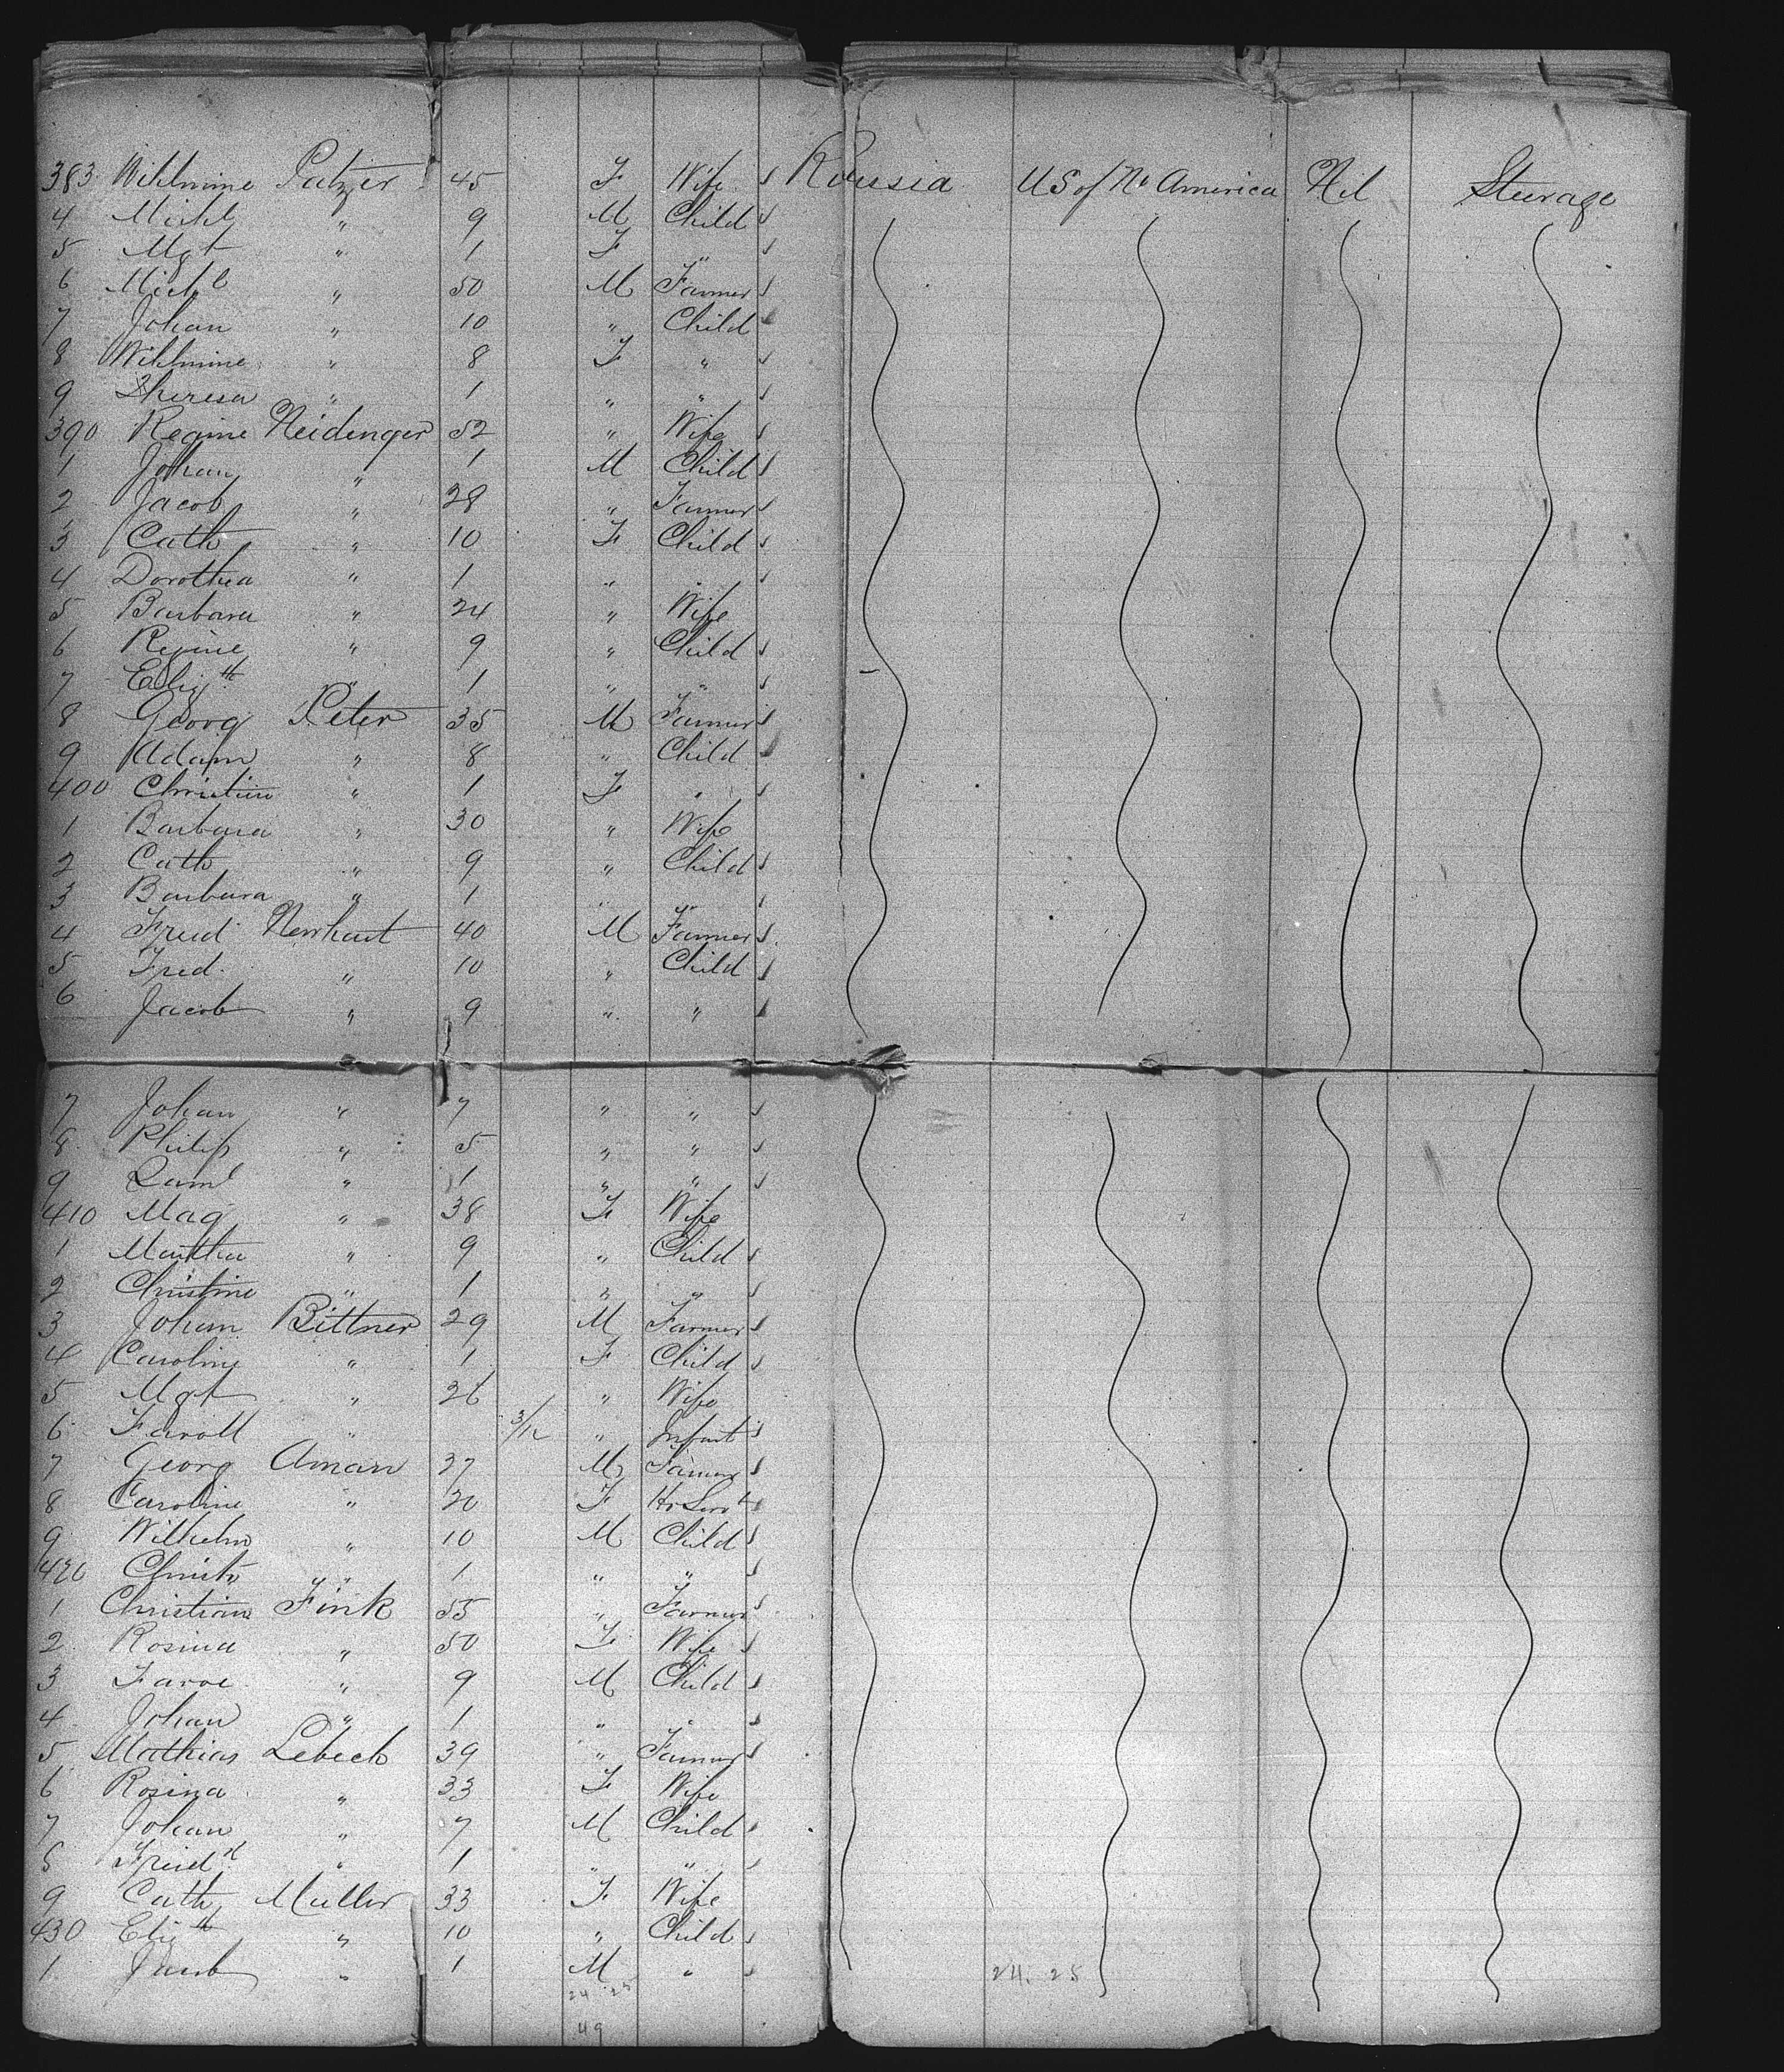 383 Wihlmine Patzer 45 F Wife Russia U S of No America Nil Steerage
4 Michl " 9 M Child
5 Mgt " 1 F "
6 Michl " 50 M Farmer
7 Johan " 10 " Child
8 Wihlmine " 8 F "
9 Theresa " 1 " "
390 Regine Neidenger 52 " Wife
1 Johan " 1 M Child
2 Jacob " 28 " Farmer
3 Cath " 10 F Child
4 Dorothea " 1 " "
5 Barbara " 24 " Wife
6 Regine " 9 " Child
7 Eliz th " 1 " "
8 Georg Peter 35 M Farmer
9 Adam " 8 " Child
400 Christine " 1 F "
1 Barbara " 30 " Wife
2 Cath " 9 " Child
3 Barbara " 1 " "
4 Fried Newhart 40 M Farmer
5 Fred " 10 " Child
6 Jacob " 9 " "
7 Johan " 7 " "
8 Philip " 5 " "
9 Saml " 1 " "
410 Mag " 38 F Wife
1 Martha " 9 " Child
2 Christine " 1 " "
3 Johan Bittner 29 M Farmer
4 Caroline " 1 F Child
5 Mgt " 26 " Wife
6 " 3/12 " Infant
7 Georg Aman 27 M Farmer
8 Caroline " 20 F Ho Servt
9 Wilhelm " 10 M Child
420 Christn " 1 " "
1 Christian Fink 55 " Farmer
2 Rosina " 50 F Wife
3 " 9 M Child
4 Johan " 1 " "
5 Mathias Lebech 39 " Farmer
6 Rosina " 33 F Wife
7 Johan " 7 M Child
8 Freid k " 1 " "
9 Cath Muller 33 F Wife
430 Eliz th " 10 " Child
1 Jacob " 1 M "
24 25 24. 25
49